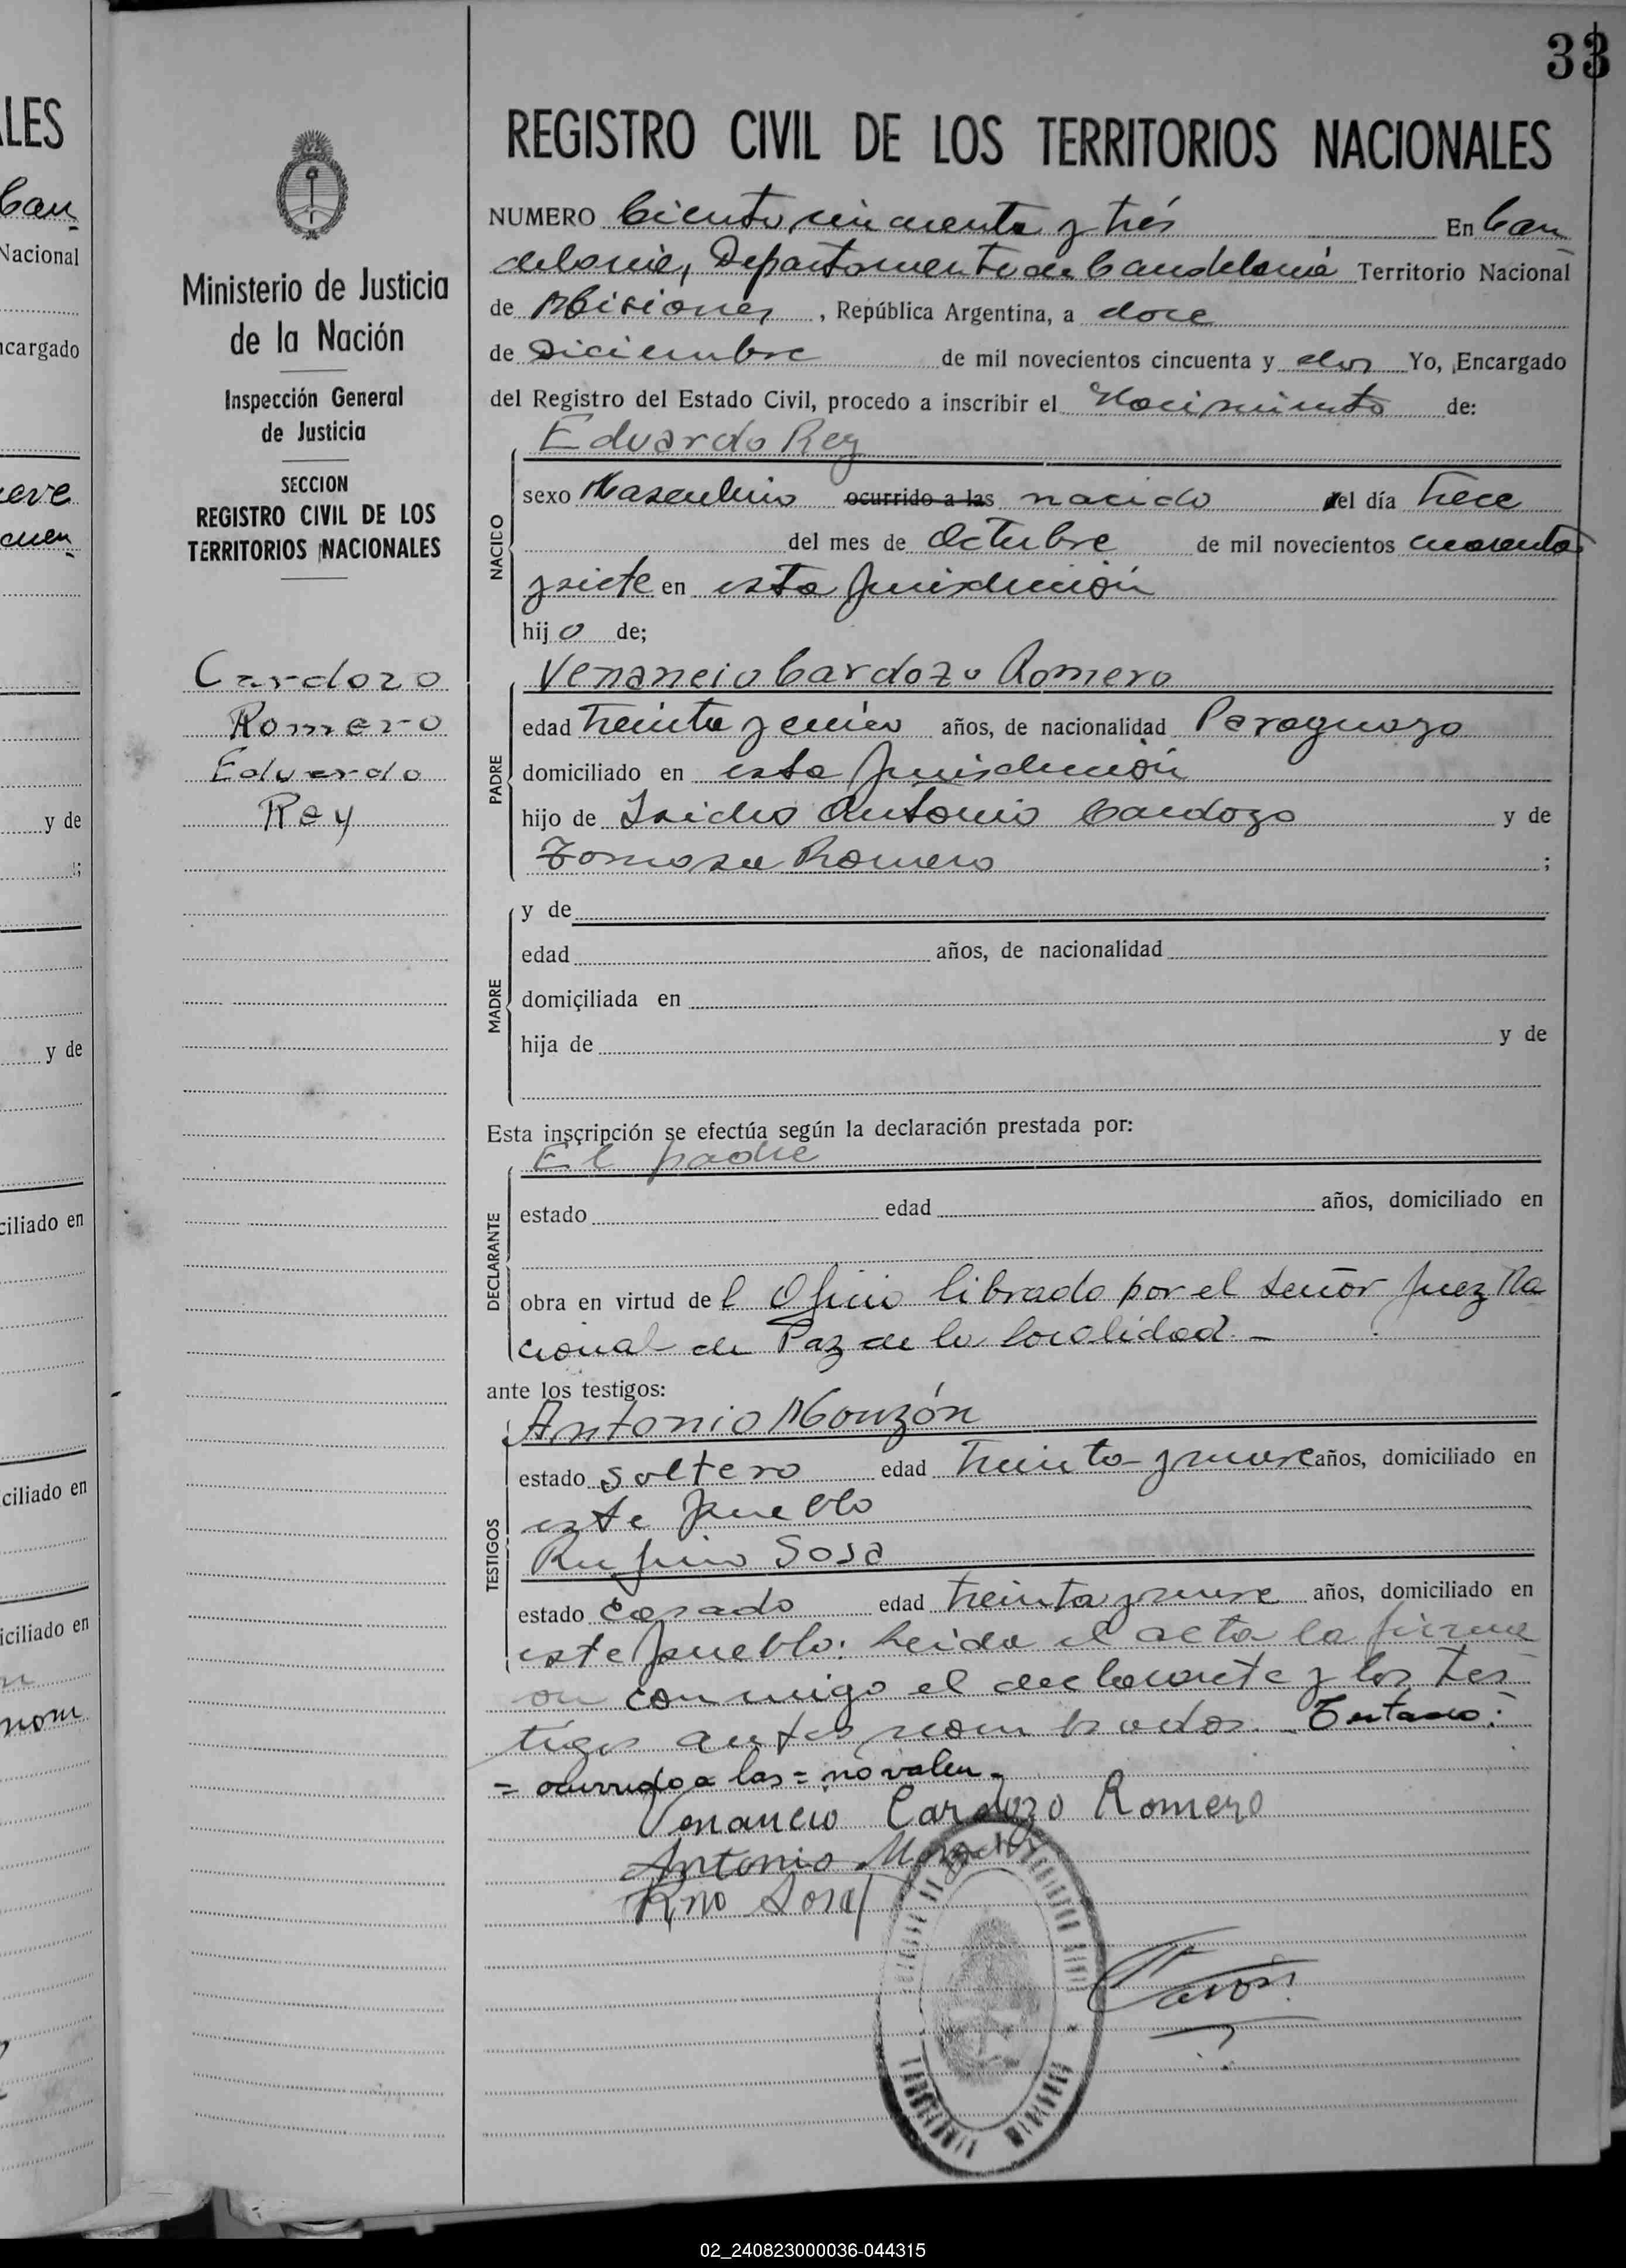 33
LES
Can
Nacional
ncargado
eve
cuen
y de
;
y de
ciliado en
ciliado en
iciliado en
n
nom
Ministerio de Justicia
de la Nación
Inspección General
de Justicia
SECCION
REGISTRO CIVIL DE LOS
TERRITORIOS NACIONALES
Cardozo
Romero
Eduardo
Rey
REGISTRO CIVIL DE LOS TERRITORIOS NACIONALES
NUMERO Ciento cincuenta y trés En Can
delaria, Departamento de Candelaria Territorio Nacional
de Misiones, República Argentina, a doce
de Diciembre de mil novecientos cincuenta y dos Yo, Encargado
del Registro del Estado Civil, procedo a inscribir el Nacimiento de:
Eduardo Rey
NACIDO
sexo Masculino ocurrido a las nacido el día trece
del mes de Octubre de mil novecientos cuarenta
y siete en esta jurisdicción
hijo de;
PADRE
Venancio Cardozo Romero
edad treinta y cinco años, de nacionalidad Paraguayo
domiciliado en esta jurisdicción
hijo de Isidro Antonio Cardozo y de
Tomasa Romero ;
MADRE
y de
edad años, de nacionalidad
domiciliada en
hija de y de
Esta inscripción se efectúa según la declaración prestada por:
DECLARANTE
El padre
estado edad años, domiciliado en
obra en virtud del Oficio librado por el señor Juez Na
cional de Paz de la localidad.-
ante los testigos:
TESTIGOS
Antonio Monzón
estado soltero edad treinta y nueve años, domiciliado en
este pueblo
Rufino Sosa
estado casado edad treinta y nueve años, domiciliado en
este pueblo. Leida el acta la firma
on conmigo el declarante y los tes
tigos antes nombrados. Testado:
= ocurrido a las = no valen.-
Venancio Cardozo Romero
Antonio Monzón
Rno Sosa
02_240823000036-044315